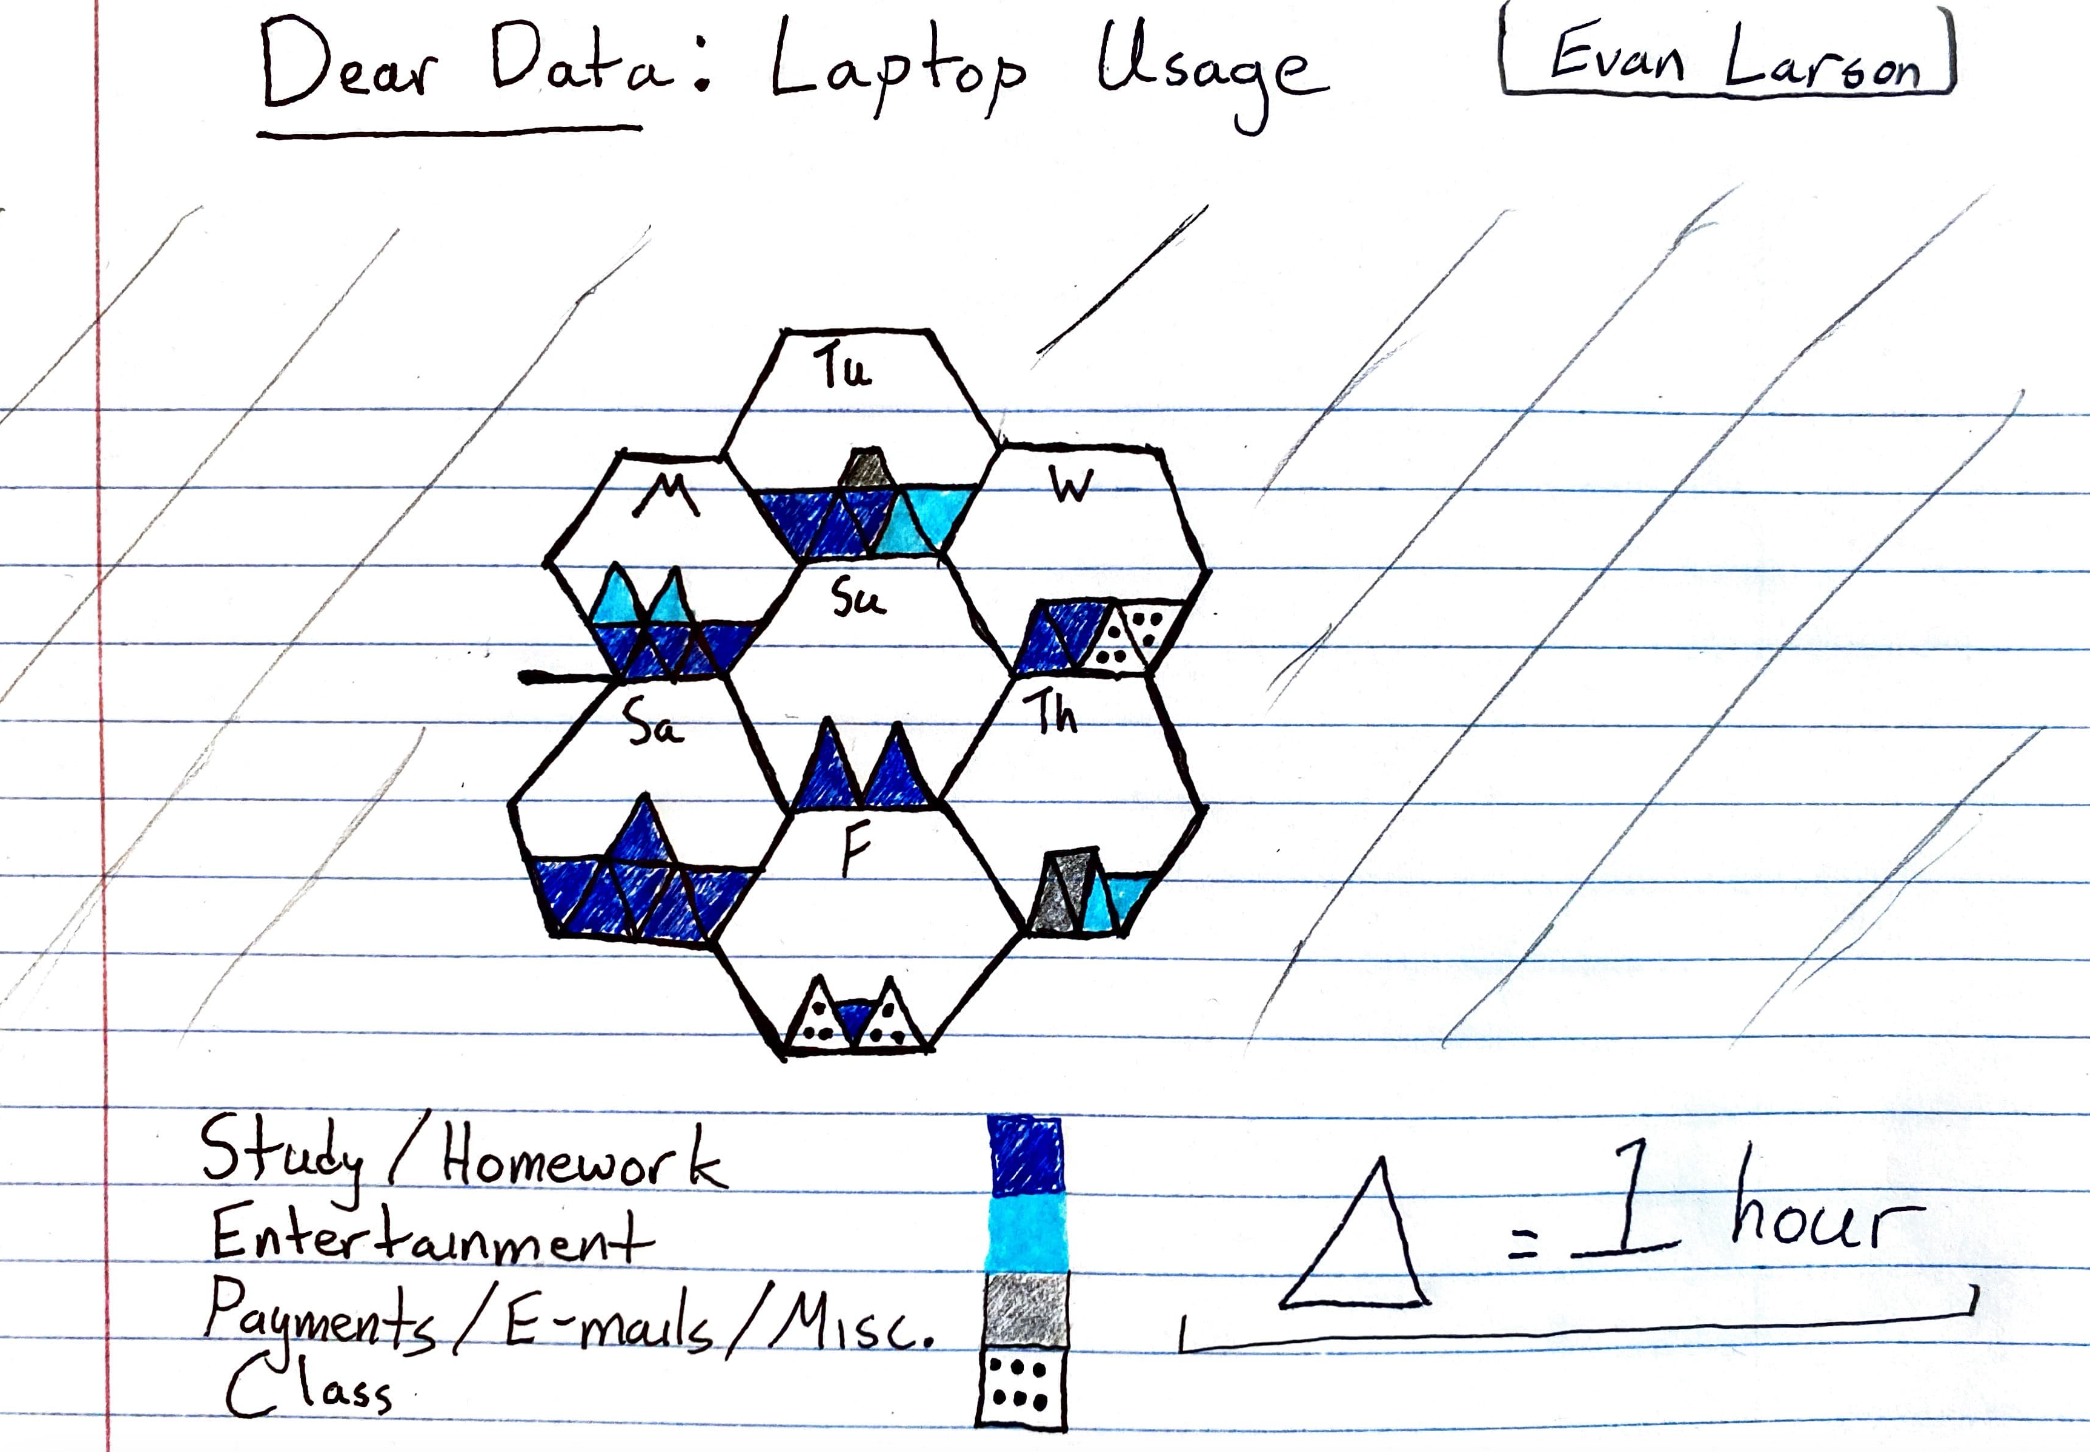 Dear Data: Laptop Usage
Evan Larson
Tu
M
W
Su
Sa
Th
F
Study/Homework
Entertainment
Payments/E-mails/Misc.
Class
= 1 hour